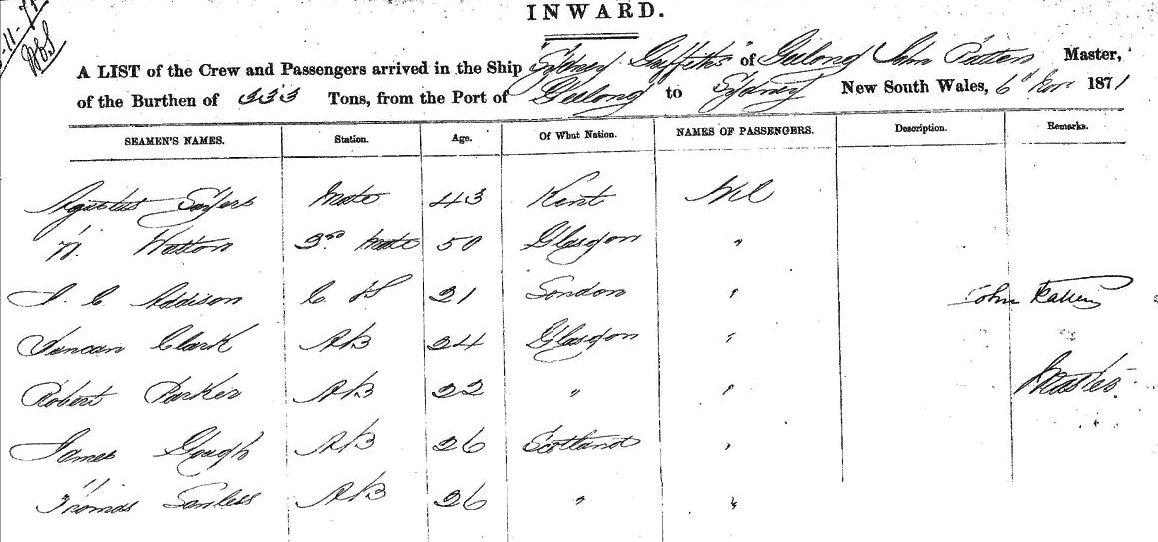 -11-71
INWARD.
A LIST of the Crew and Passengers arrived in the Ship "Sydney Griffiths" of Geelong John Patten Master,
of the Burthen of 333 Tons, from the Port of Geelong to Sydney New South Wales, 6th Nov 1871
SEAMEN'S NAMES. Station. Age. Of What Nation. NAMES OF PASSENGERS. Description. Remarks.
Mate 43 Kent Nil
Watson 2nd Mate 50 Glasgow "
Addison C &S 21 London "
John Patten
Duncan Clark AB 24 Glasgow "
Robert Parker AB 22 " "
Master
James Gough AB 26 Scotland "
Thomas AB 26 " "